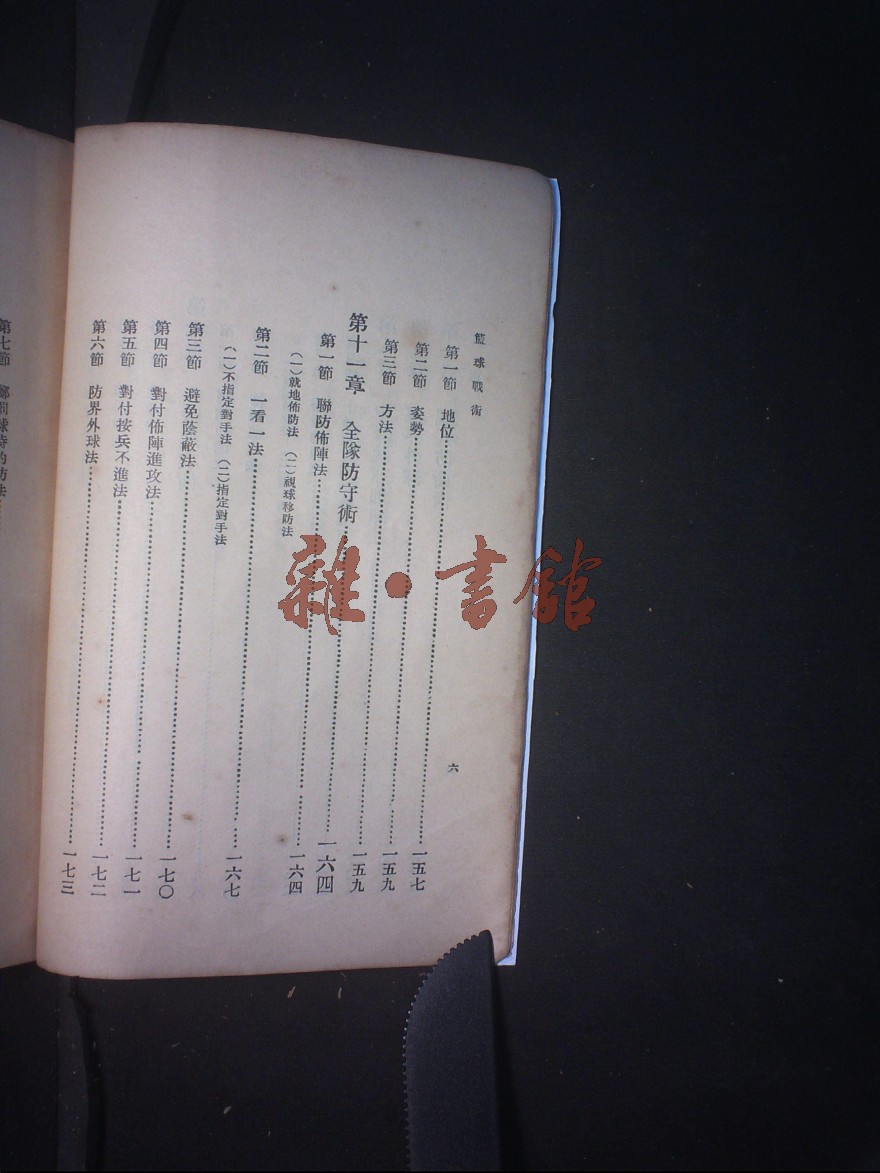 籃球戰術
六
第一節 地位……一五七
第二節 姿勢……一五九
第三節 方法……一五九
第十一章 全隊防守術……一六四
第一節 聯防佈陣法……一六四
(一)就地佈防法 (二)視球移防法
第二節 一看一法……一六七
(一)不指定對手法 (二)指定對手法
第三節 避免蔭蔽法……一七〇
第四節 對付佈陣進攻法……一七一
第五節 對付按兵不進法……一七二
第六節 防界外球法……一七三
第七節
雜·書館